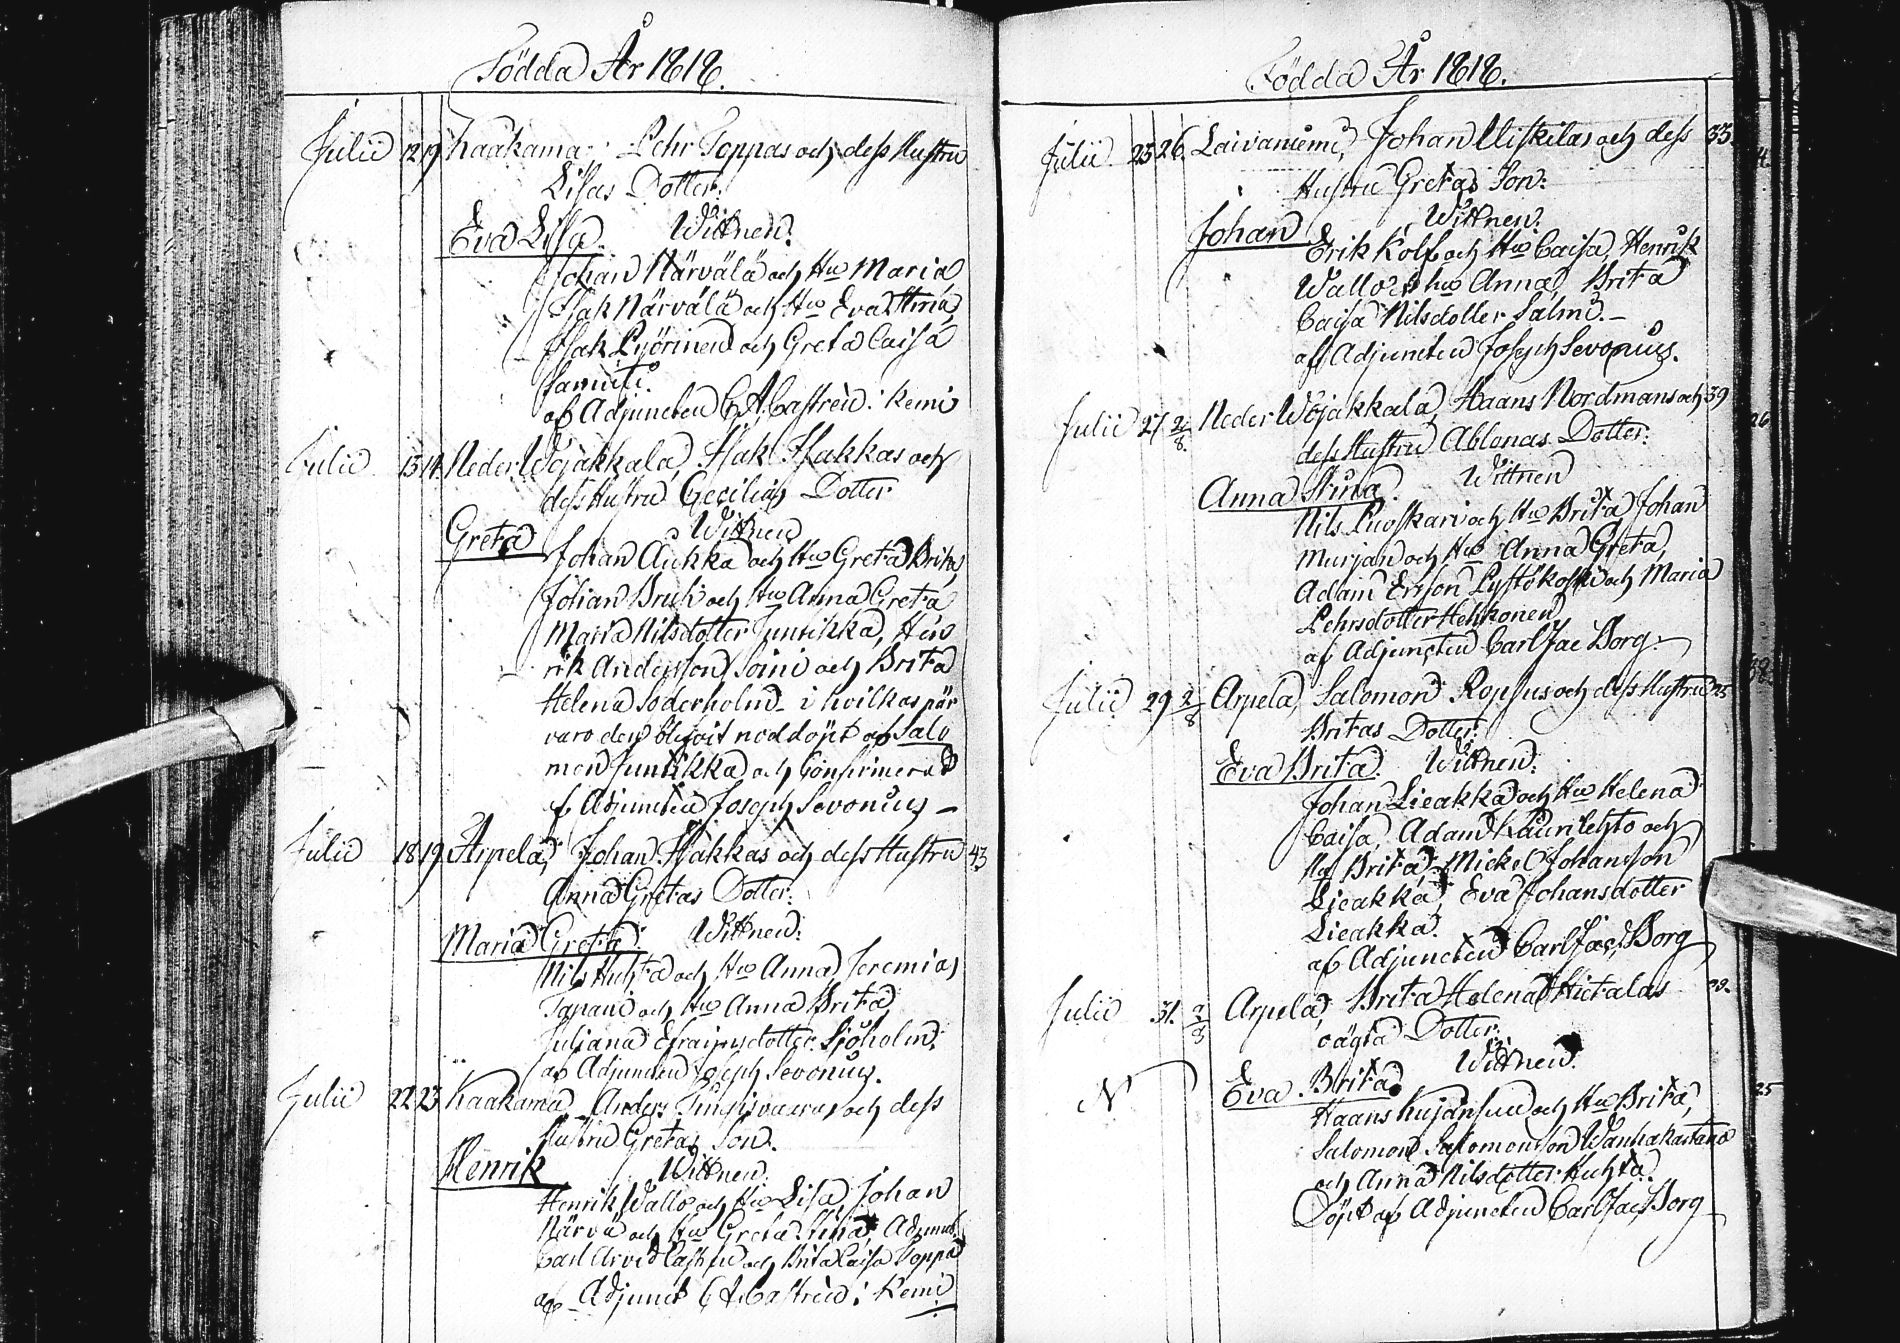 Födda År 1818.
Julii 12 19 Kaakama Pehr Toppas och dess Hustru
Lisas Dotter.
Eva Lisa. Wittnen:
Johan Närvälä och Hu Maria
Isak Närvälä och Hu Eva Stina,
Isak Pyörinen och Greta Caisa
af Adjuncten C. A. Castrén i Kemi
Julii 13 14 Neder Wojakkala, Isak Isakkas och
dess Hustru Cecilias Dotter
Greta Wittnen
Johan Aukka och Hu Greta Brita,
Johan Bruh och Hu Anna Greta
Maria Nilsdotter Juntikka, Hen
rik Andersson Soini och Brita
Helena Söderholm i hvilkas när
varo den blifvit nöddöpt af Salo
mon Juntikka och Confirmerad
af Adjuncten Joseph Sevonius
Julii 18 19 Arpela, Johan Isakkas och dess Hustru 43
Anna Gretas Dotter.
Maria Greta Wittnen:
Nils Huhta och Hu Anna, Jeremias
Tapani och Hu Anna Brita,
Juliana Efraimsdotter Sjöholm,
af Adjuncten Joseph Sevonius.
Julii 22 23 Kaakama Anders och dess
Hustru Gretas Son.
Henrik Wittnen:
Henrik Wallo och Hu Lisa, Johan
Närvä och Hu Greta Stina Adjunct.
Carl Arvid Castrén och Brita Caisa Toppa
af Adjunct C A Castrén i Kemi
Födda År 1818.
Julii 25 26. Laivaniemi, Johan Uiskilas och dess 33
Hustru Gretas Son:
Johan Wittnen:
Erik Kolf och Hu Caisa, Henrik
Wallo och hu Anna, Brita
Caisa Nilsdotter Salmi.
af Adjuncten Joseph Sevonius.
Julii 27 2/8. Neder Wojakkala, Haans Nordmans och 39
dess Hustru Ablonas Dotter:
Anna Stina. Wittnen
Nils Puoskari och Hu Brita Johan
Murjan och Hu Anna Greta,
Adam Ersson och Maria
Pehrsdotter Hehkonen,
af Adjuncten Carl Jac Borg.
Julii 29 2/8 Arpela, Salomon Ropsus och dess Hustru 25
Britas Dotter.
Eva Brita. Wittnen:
Johan Lieakka och Hu Helena
Caisa, Adam Kaurilehto och
Hu Brita Mickel Johansson
Lieakka, Eva Johansdotter
Lieakka.
af Adjuncten Carl Jac Borg
Julii 31. 2/8 Arpela, Brita Helena Hietalas
oägta Dotter.
N Eva Brita Wittnen.
Haans Kujansuu och Hu Brita,
Salomon Salomonsson Wanhakartano
och Anna Nilsdotter Huhta.
Döpt af Adjuncten Carl Jac Borg